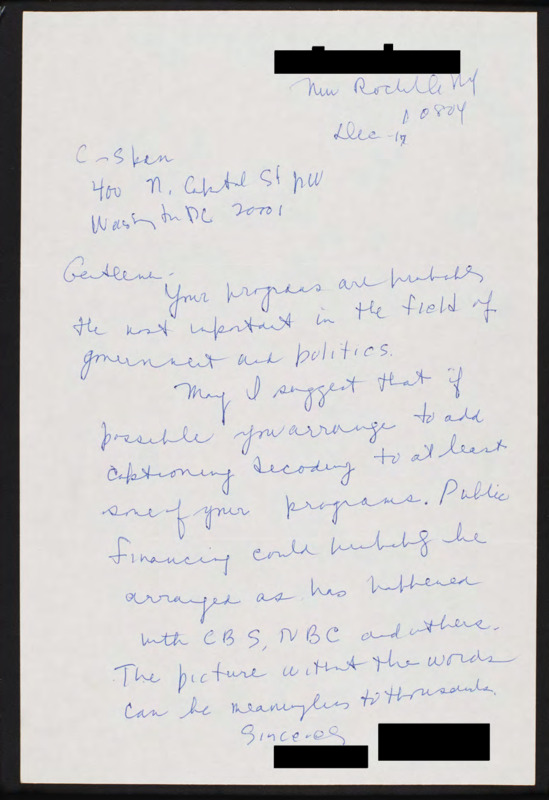 New Rochelle NY
10804
Dec 17
C-Span
400 N. Capital St NW
Washington DC 20001
Gentlemen.
Your programs are probably
the most important in the field of
government and politics.
May I suggest that if
possible you arrange to add
captioning decoding to at least
some of your programs. Public
financing could probably be
arranged as has happened
with CBS, NBC and others.
The picture without the words
can be meaningless to thousands.
Sincerely